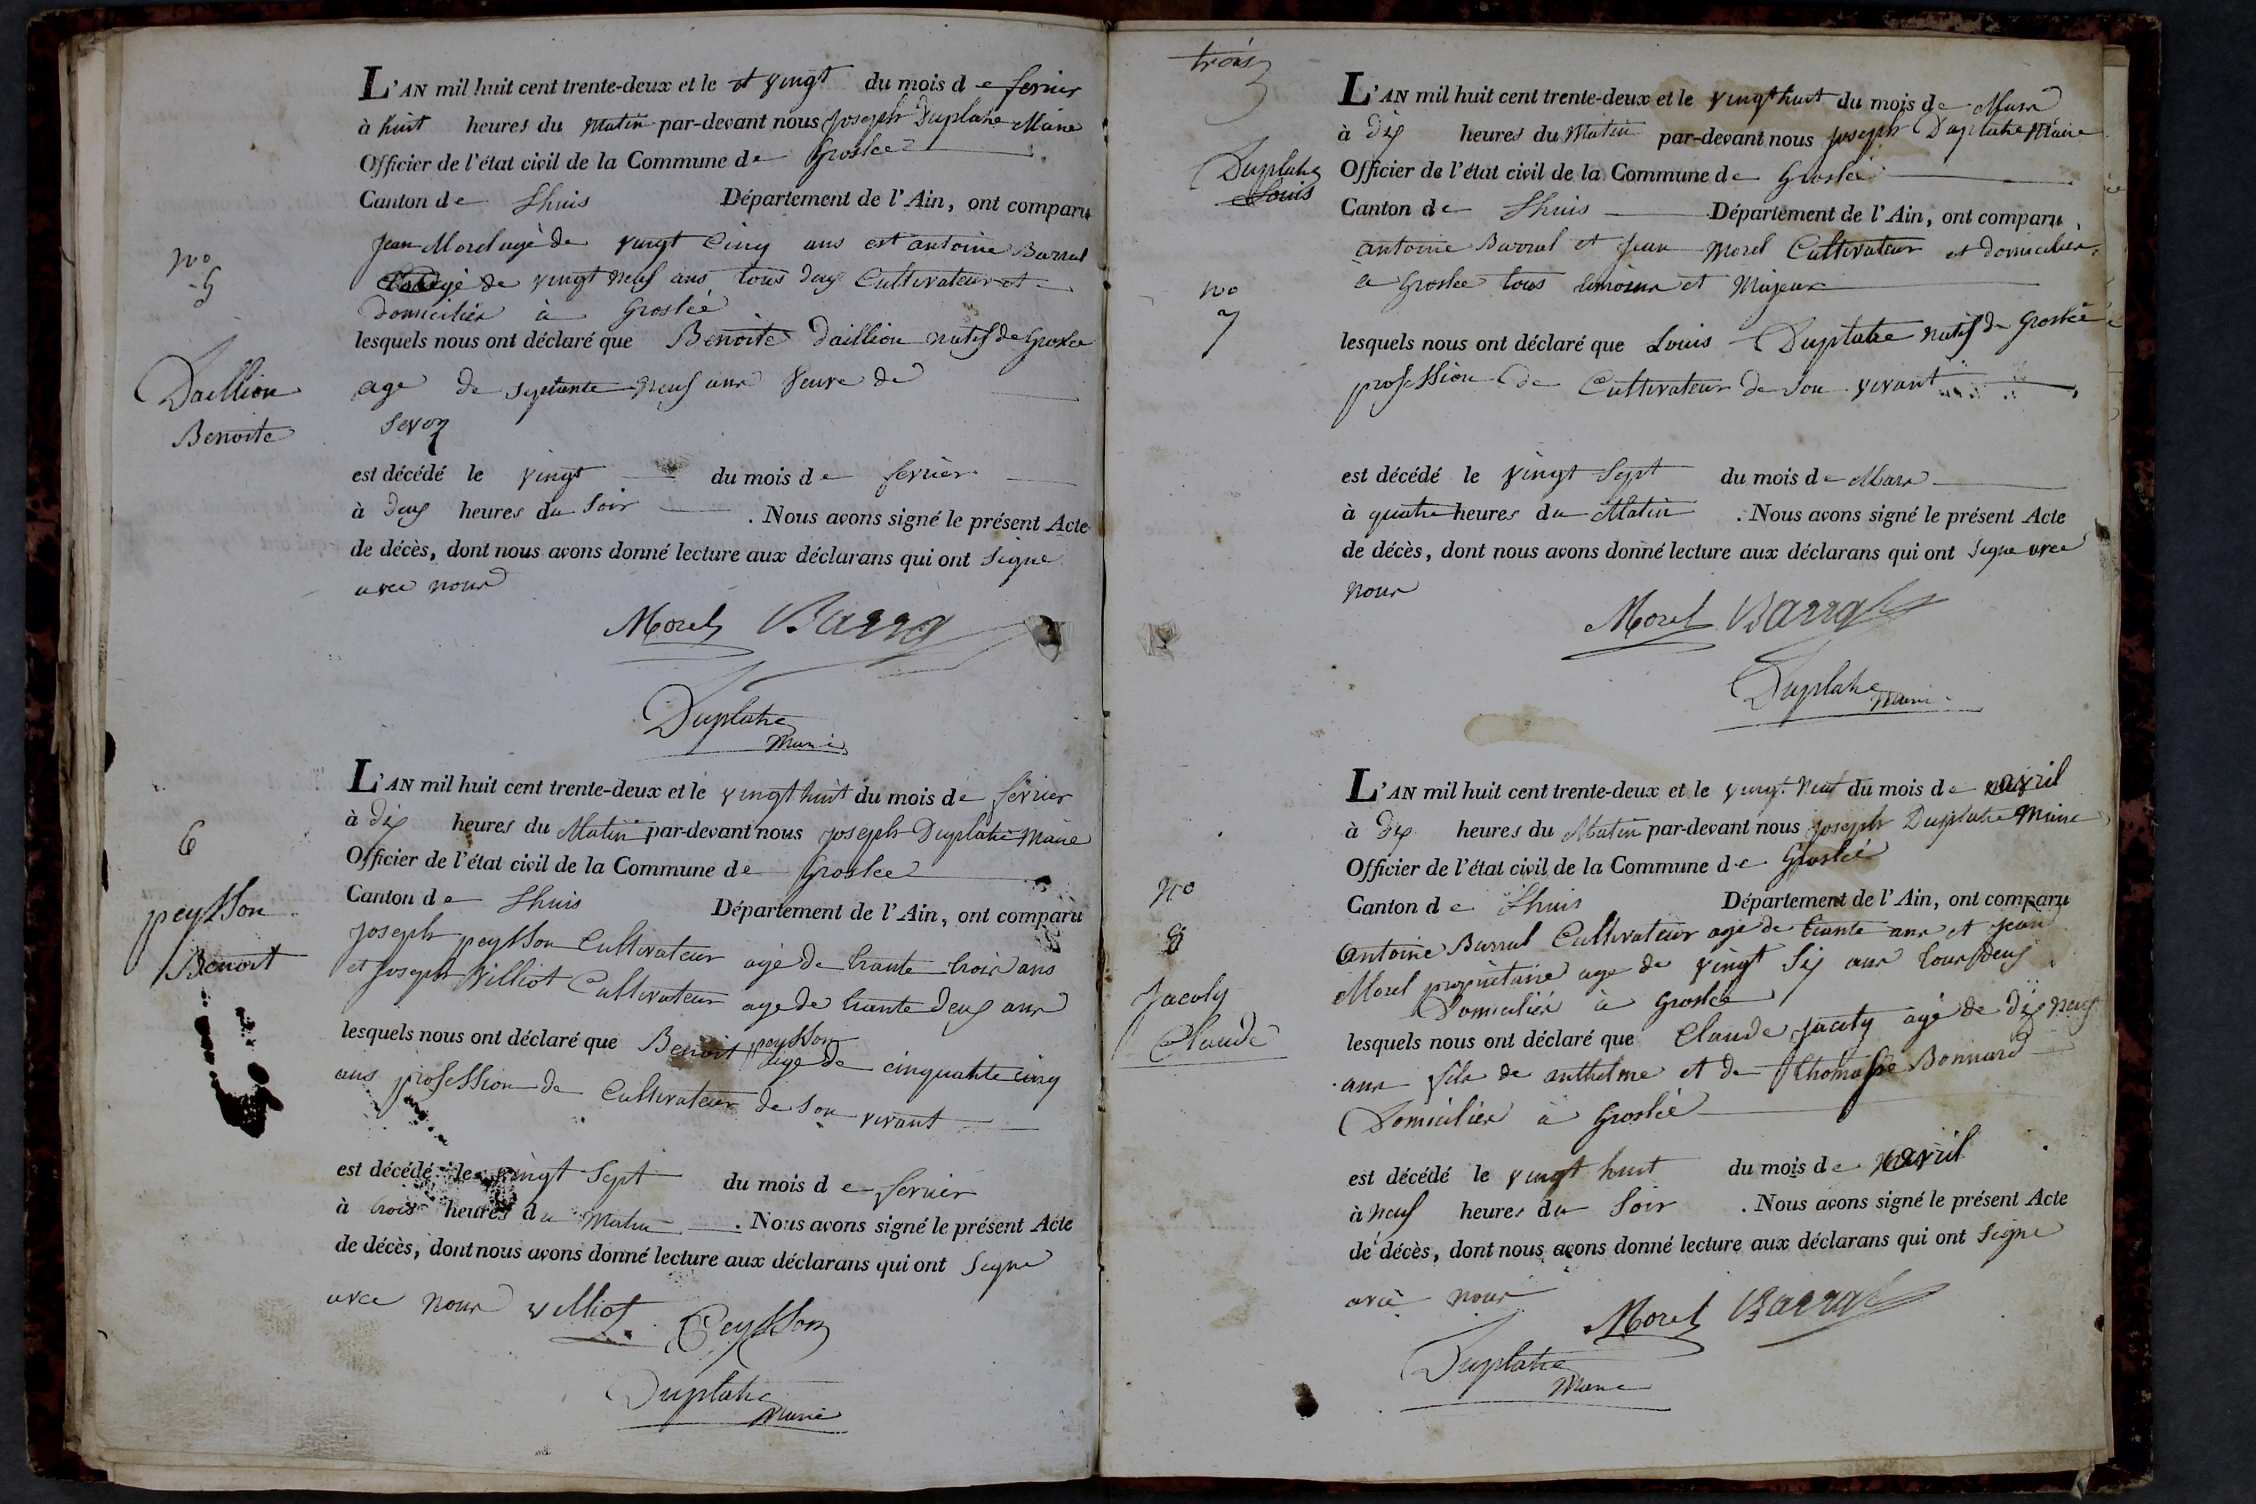 L'AN mil huit cent trente-deux et le et vingt du mois de fevrier
à huit heures du matin par-devant nous Joseph Duplatre Maire
Officier de l'état civil de la Commune de Groslee
Canton de Lhuis Département de l'Ain, ont comparu
Jean Morel agé de vingt Cinq ans est antoine Barral
agé de vingt neuf ans tous deux Cultivateur et
domiciliés à Groslée
No
5
lesquels nous ont déclaré que Benoite Daillion natif de Groslee
Daillion
Benoite
age de septante neuf ans veuve de
Sevoz
est décédé le vingt du mois de fevrier
à deux heures du Soir . Nous avons signé le présent Acte
de décès, dont nous avons donné lecture aux déclarans qui ont Signe
avec nous
Morel Barral
Duplatre
Maire
L'AN mil huit cent trente-deux et le vingt huit du mois de février
à dix heures du Matin par-devant nous Joseph Duplatre Maire
Officier de l'état civil de la Commune de Groslee
6
peysson
Benoit
Canton de Lhuis Département de l'Ain, ont comparu
Joseph peysson Cultivateur agé de trante trois ans
et Joseph Villiot Cultivateur age de trante deux ans
lesquels nous ont déclaré que Benoit peysson age de cinquante cinq
ans profession de Cultivateur de son vivant
est décédé le vingt Sept du mois de fevrier
à trois heures du Matin . Nous avons signé le présent Acte
de décès, dont nous avons donné lecture aux déclarans qui ont Signe
avec nous villiot Peysson
Duplatre
Maire
trois
L'AN mil huit cent trente-deux et le vingt huit du mois de Mars
à dix heures du Matin par-devant nous Joseph Duplatre Maire
Duplatre
Louis
Officier de l'état civil de la Commune de Groslée
Canton de Lhuis Département de l'Ain, ont comparu
antoine Barral et Jean Morel Cultivateur et domiciliés
à Groslee tous temoins et Majeurs
No
7
lesquels nous ont déclaré que Louis Duplatre natif de Groslée
profession de Cultivateur de son vivant
est décédé le vingt Sept du mois de Mars
à quatre heures du Matin . Nous avons signé le présent Acte
de décès, dont nous avons donné lecture aux déclarans qui ont Signe avec
nous
Morel Barral
Duplatre
Maire
L'AN mil huit cent trente-deux et le vingt Neuf du mois de avril
à dix heures du Matin par-devant nous Joseph Duplatre Maire
Officier de l'état civil de la Commune de Groslée
No
8
Jacoly
Claude
Canton de Lhuis Département de l'Ain, ont comparu
antoine Barral Cultivateur agé de trante ans et Jean
Morel propriétaire age de vingt Six ans tous deux
Domiciliés à Groslée
lesquels nous ont déclaré que Claude Jacoly agé de dix neuf
ans fils de anthelme et de Thomasse Bonnard
Domiciliés à Groslée
est décédé le vingt huit du mois de avril
à neuf heures du Soir . Nous avons signé le présent Acte
de décès, dont nous avons donné lecture aux déclarans qui ont Signe
avec nous
Morel Barral
Duplatre
Maire